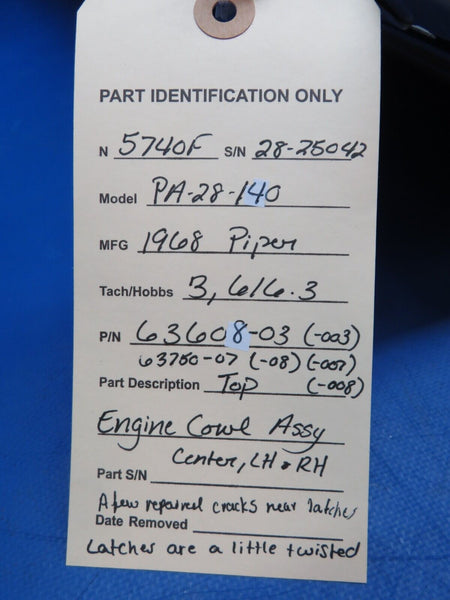 PART IDENTIFICATION ONLY
N 5740F S/N 28-25042
Model PA-28-140
MFG 1968 Piper
Tach/Hobbs 3,616.3
P/N 63608-03 (-003)
63750-07 (-08) (-007)
Part Description Top (-008)
Engine Cowl Assy
Center, LH & RH
Part S/N
A few repaired cracks near latches
Date Removed
Latches are a little twisted